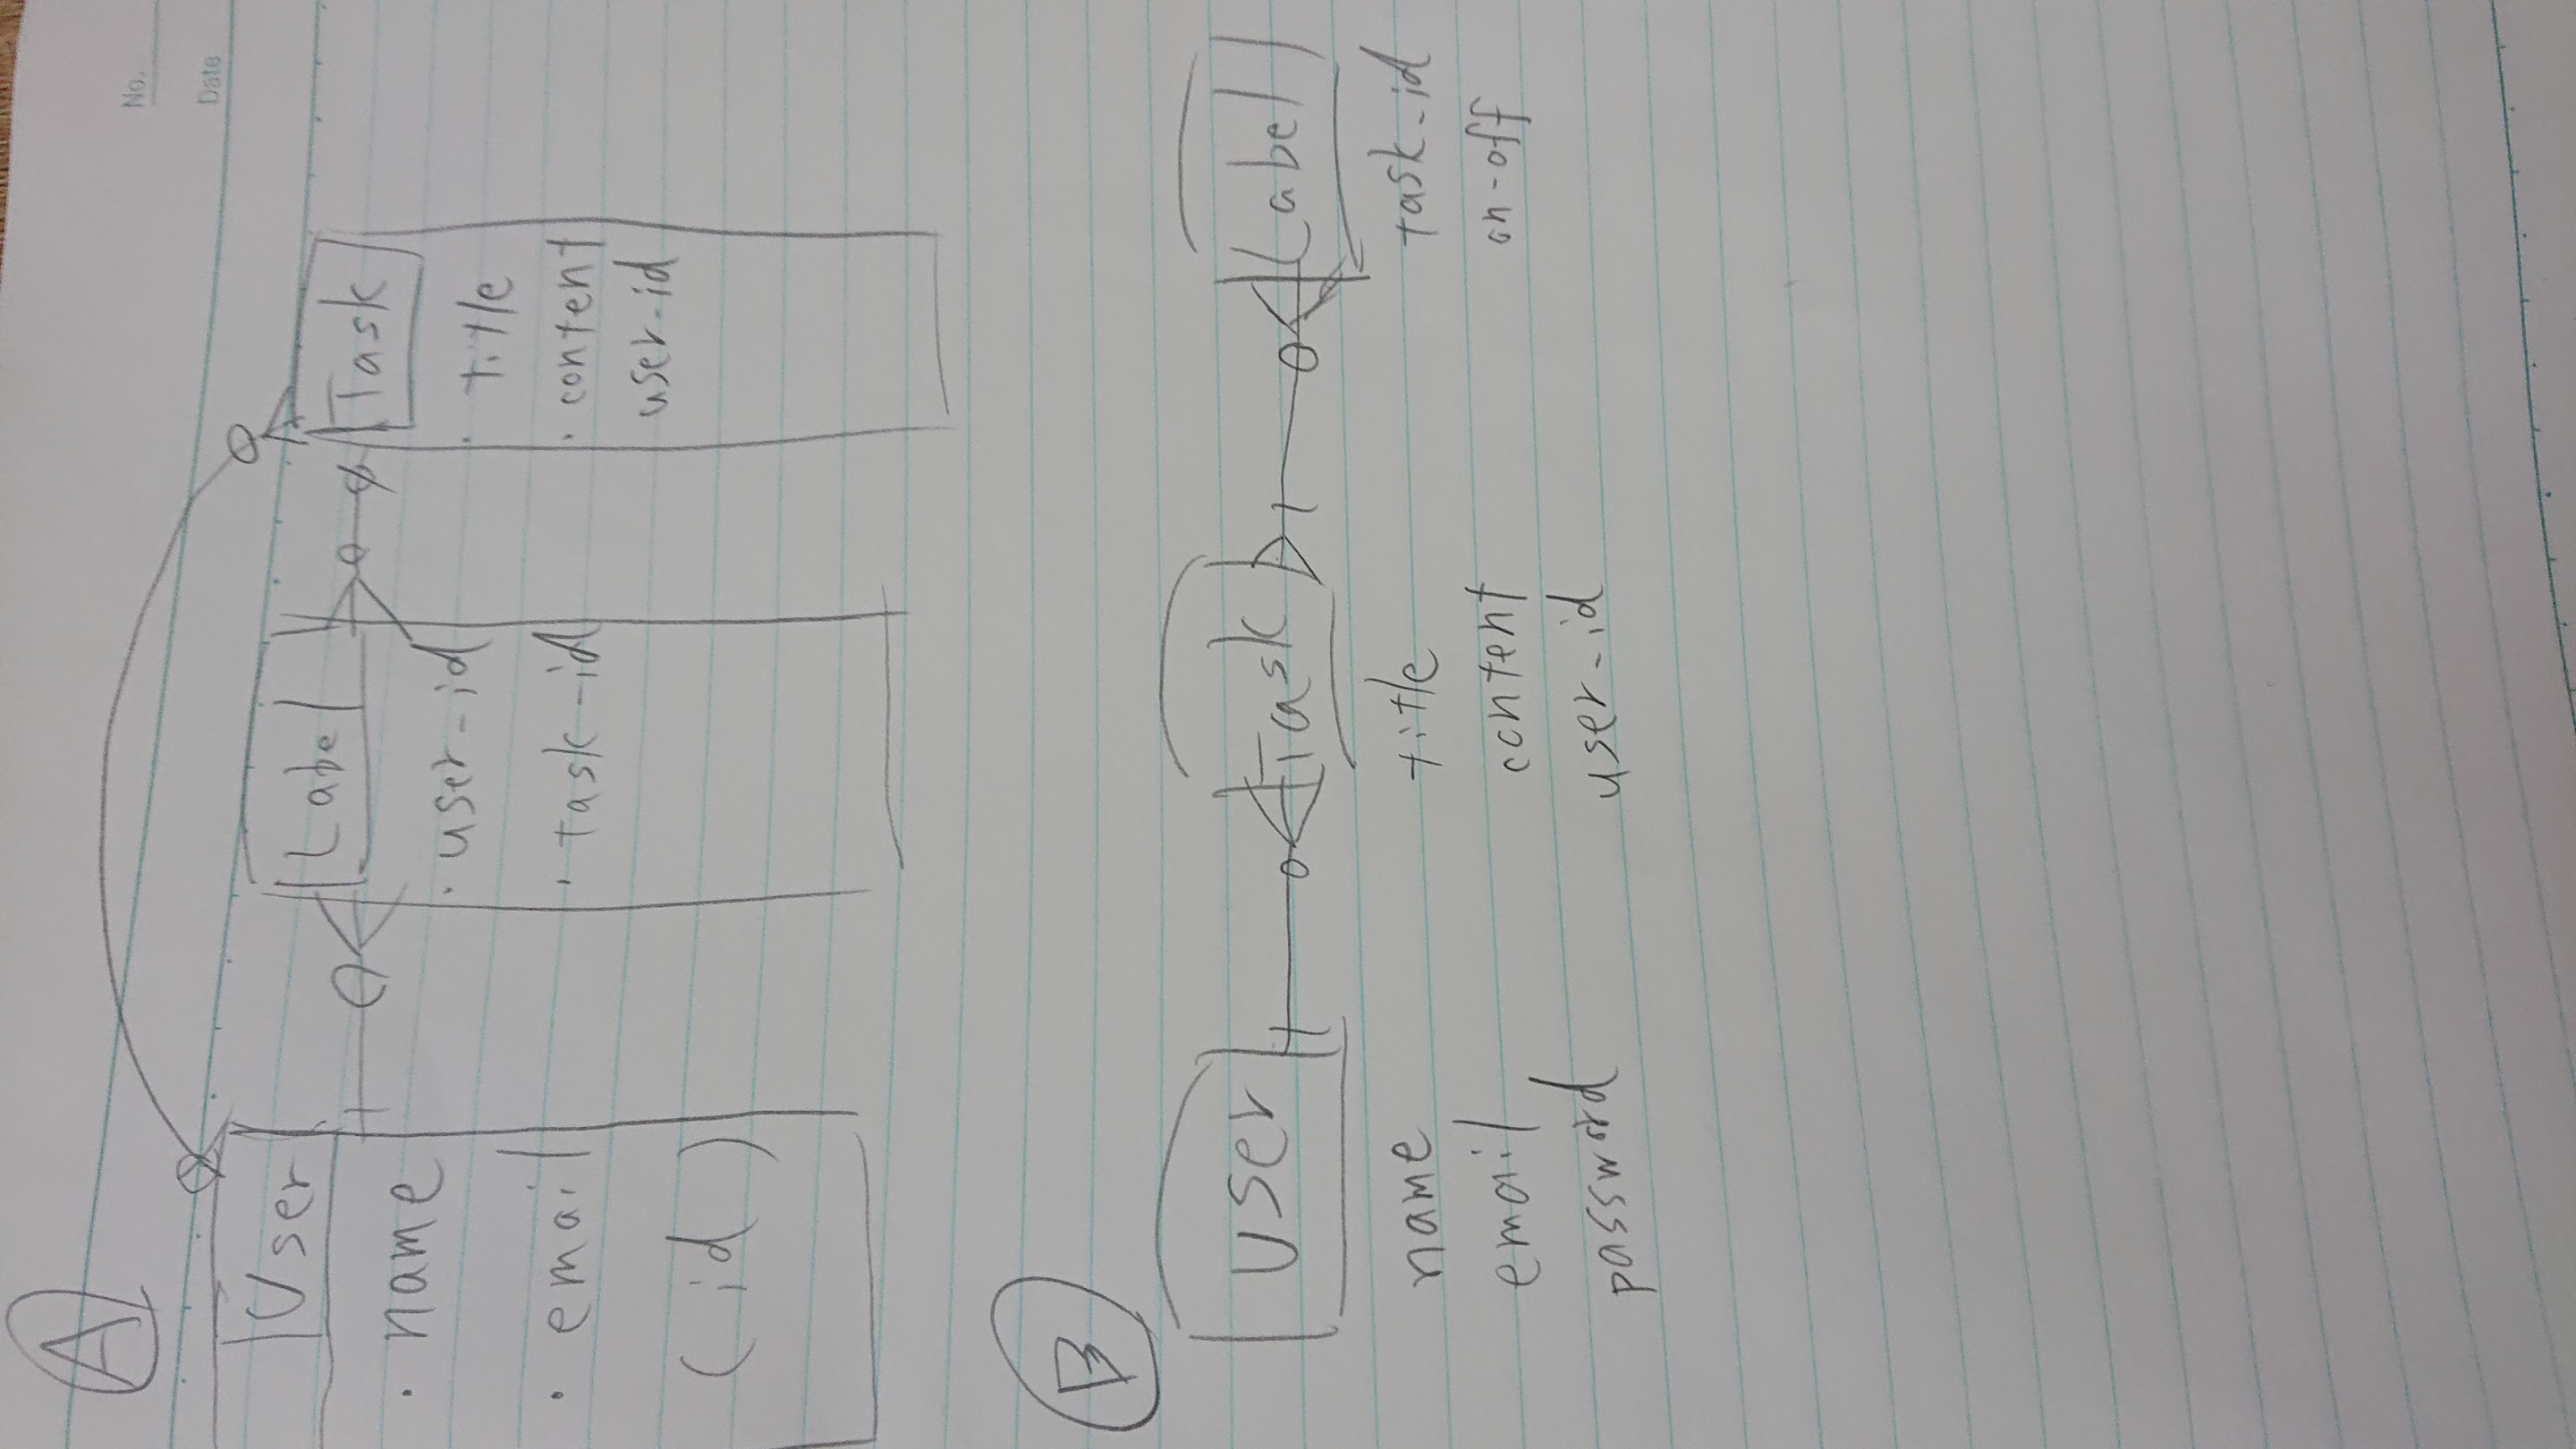 No.
Date
A
User
・name
・email
(id)
Label
・user-id
・task-id
Task
・title
・content
user-id
B
User
name
email
password
Task
title
content
user-id
Label
task-id
on-off